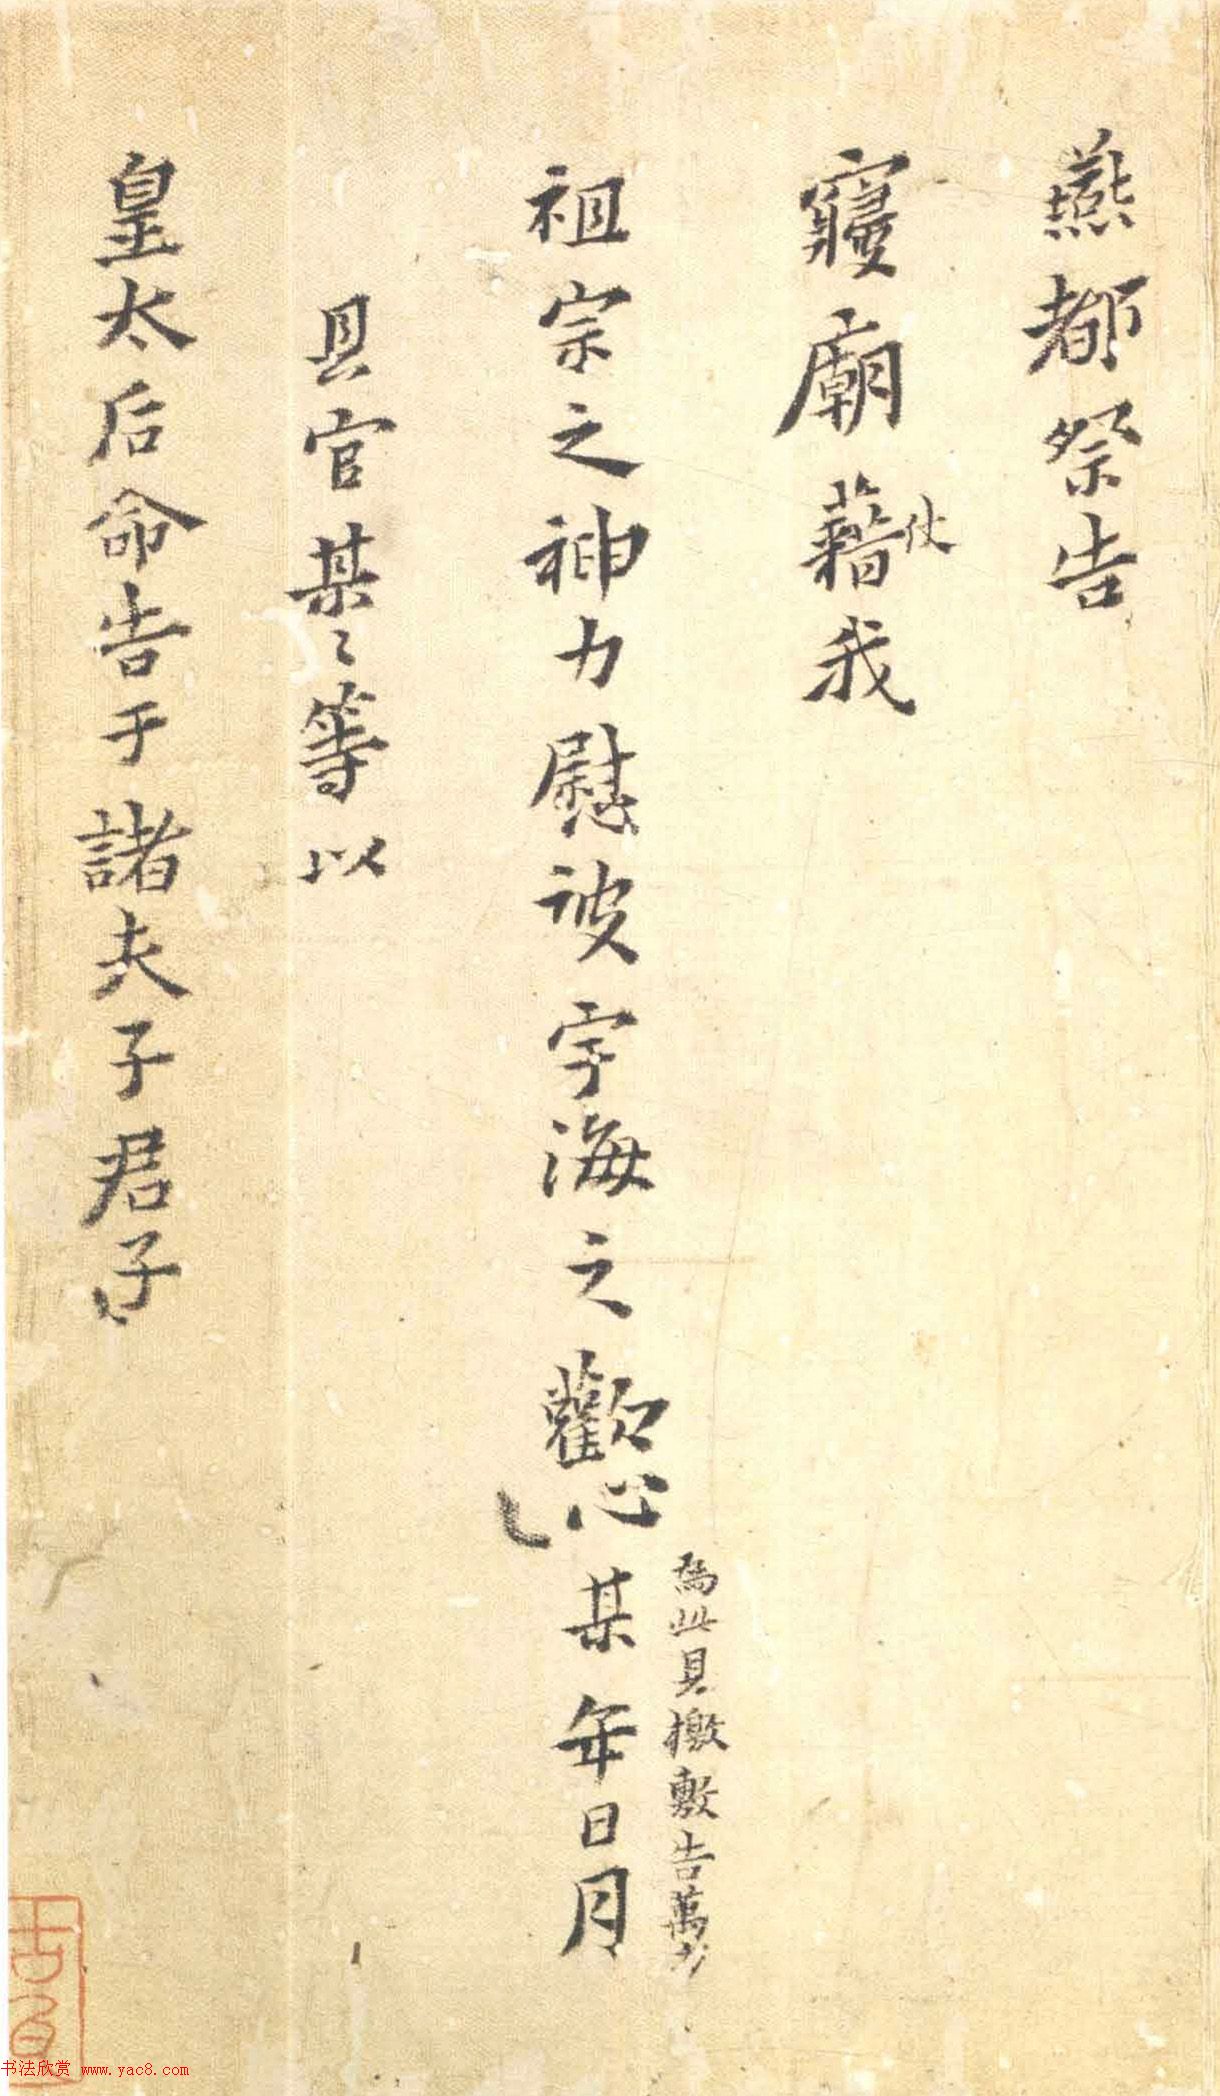 燕都祭告
寢廟藉仗我
祖宗之神力慰被宇海之歡心某年日月
為此具檄敷告萬方
具官某〻等以
皇太后命告于諸夫子君子
书法欣赏 www.yac8.com